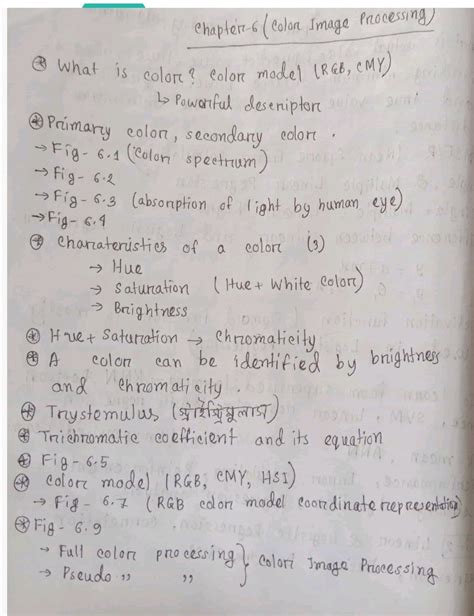 Chapter-6 (Color Image Processing)
What is color? Color model (RGB, CMY)
↳ Powerful descriptor
Primary color, secondary color.
→ Fig- 6.1 (Color spectrum)
→ Fig- 6.2
→ Fig- 6.3 (absorption of light by human eye)
→ Fig- 6.4
Charateristics of a color (3)
→ Hue
→ Saturation (Hue + White Color)
→ Brightness
Hue + Saturation → Chromaticity
A color can be identified by brightness
and Chromaticity
Trystemulus
Trichromatic coefficient and its equation
Fig- 6.5
Color model (RGB, CMY, HSI)
→ Fig- 6.7 (RGB color model coordinate representation)
Fig- 6.9
→ Full color processing } Color Image Processing
→ Pseudo ,, ,,